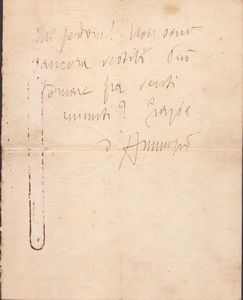 Mi perdoni! Non sono
ancora vestito. Può
tornare fra venti
minuti? Grazie
d'Annunzio